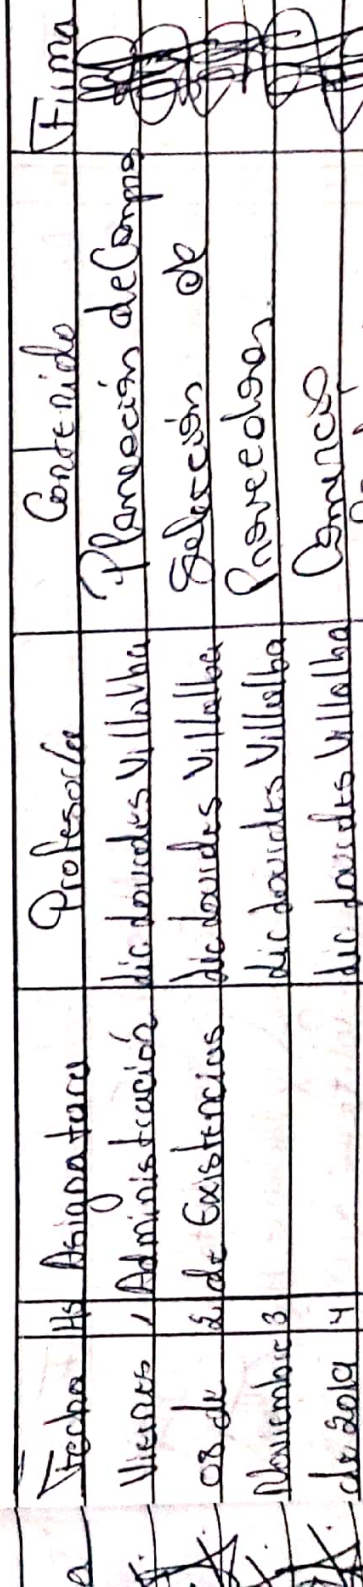 Fecha Hs Asignatura Profesor/a Contenido Firma
Viernes 1 Administración Lic Lourdes Villalba Planeación de Compra
08 de 2 de Existencias Lic Lourdes Villalba Selección de
Noviembre 3 Lic Lourdes Villalba Proveedores.
de 2019 4 Lic Lourdes Villalba Comercio